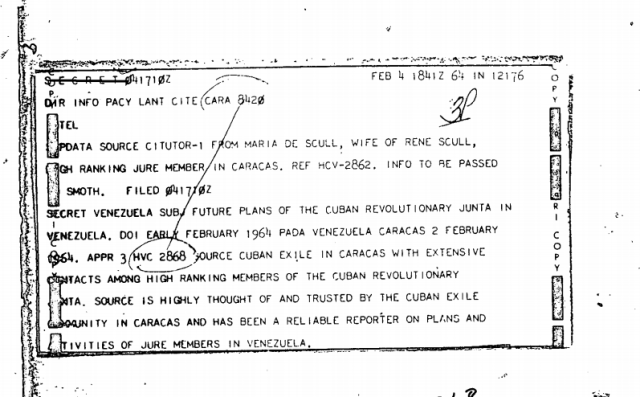 SECRET 041710Z FEB 4 1841Z 64 IN 12176
DIR INFO PACY LANT CITE CARA 8420
TEL
PDATA SOURCE CITUTOR-1 FROM MARIA DE SCULL, WIFE OF RENE SCULL,
GH RANKING JURE MEMBER IN CARACAS. REF HCV-2862. INFO TO BE PASSED
SMOTH. FILED 041710Z
SECRET VENEZUELA SUBJ FUTURE PLANS OF THE CUBAN REVOLUTIONARY JUNTA IN
VENEZUELA. DOI EARLY FEBRUARY 1964 PADA VENEZUELA CARACAS 2 FEBRUARY
1964. APPR 3 HVC 2868 SOURCE CUBAN EXILE IN CARACAS WITH EXTENSIVE
CONTACTS AMONG HIGH RANKING MEMBERS OF THE CUBAN REVOLUTIONARY
NTA. SOURCE IS HIGHLY THOUGHT OF AND TRUSTED BY THE CUBAN EXILE
MUNITY IN CARACAS AND HAS BEEN A RELIABLE REPORTER ON PLANS AND
TIVITIES OF JURE MEMBERS IN VENEZUELA.
COPY
RI COPY